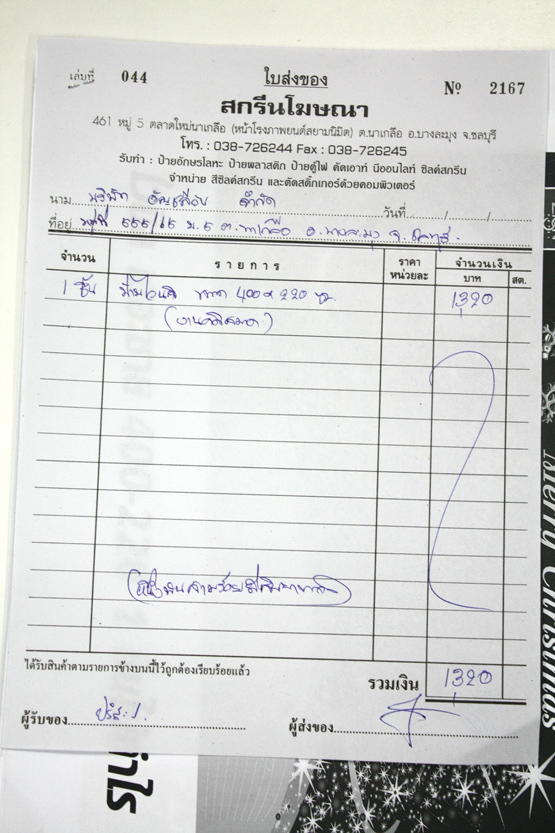 เล่มที่ 044 ใบส่งของ Nº 2167
สกรีนโฆษณา
461 หมู่ 5 ตลาดใหม่นาเกลือ (หน้าโรงภาพยนต์สยามนิมิต) ต.นาเกลือ อ.บางละมุง จ.ชลบุรี
โทร. : 038-726244 Fax : 038-726245
รับทำ : ป้ายอักษรโลหะ ป้ายพลาสติก ป้ายตู้ไฟ คัตเอาท์ นีออนไลท์ ซิลค์สกรีน
จำหน่าย สีซิลค์สกรีน และตัดสติ๊กเกอร์ด้วยคอมพิวเตอร์
นาม บริษัท จำกัด วันที่ / /
ที่อยู่ 555/65 ม.5 ต.นาเกลือ อ.บางละมุง จ.ชลบุรี
จำนวน รายการ ราคาหน่วยละ จำนวนเงิน
บาท สต.
1 ชิ้น ป้ายไวนิล ขนาด 400 x 220 ซม. 1320
(หนึ่งพันสามร้อยยี่สิบบาท)
ได้รับสินค้าตามรายการข้างบนนี้ไว้ถูกต้องเรียบร้อยแล้ว
รวมเงิน 1320
ผู้รับของ ผู้ส่งของ
Merry Christmas
กำไร